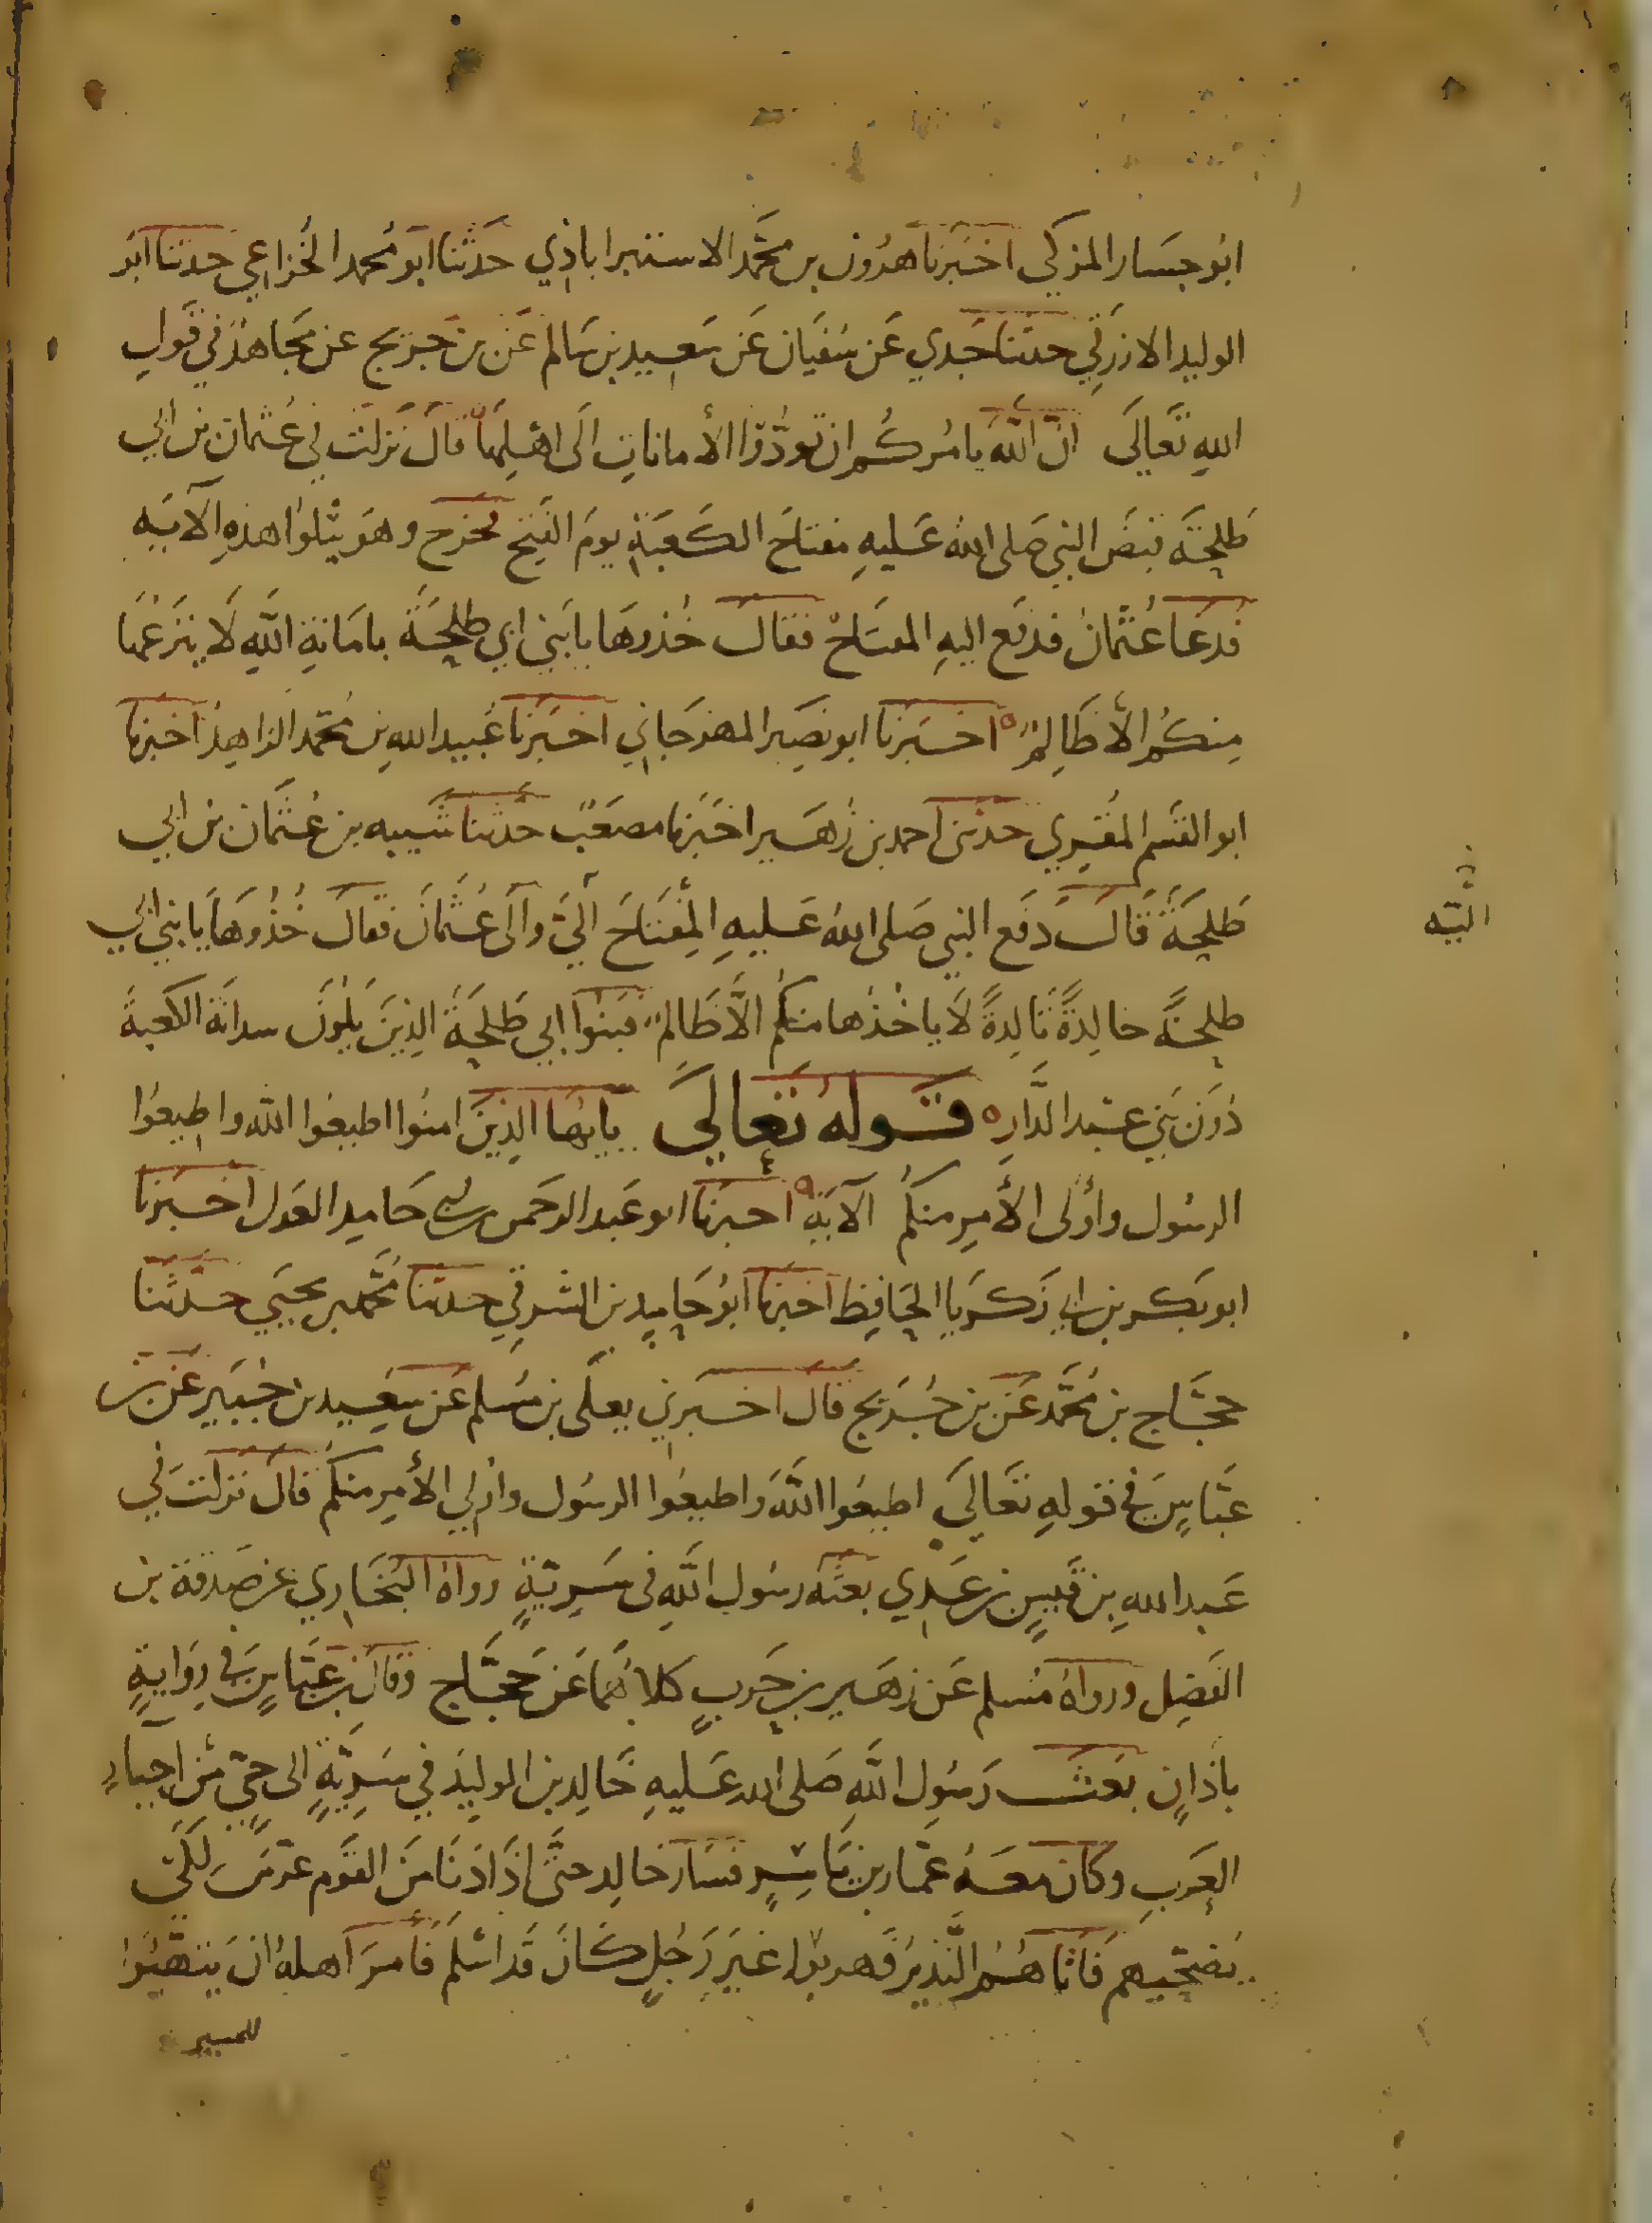 ابو حسار المزكي اخبرنا هرون بن محمد الاستنبراباذي حدثنا ابو محمد الخزاعي حدثنا ابو
الوليد الازرقي حدثنا جدي عن سفيان عن سعيد بن سالم عن بن جريج عن مجاهد في قول
الله تعالى ان الله يامركم ان تودوا الأمانات الى اهلها قال نزلت في عثمان بن ابي
طلحة قبض النبي صلى الله عليه مفتاح الكعبة يوم الفتح فخرج وهو يتلوا هذه الآية
فدعا عثمان فدفع اليه المفتاح فقال خذوها يا بني ابي طلحة بامانة الله لا ينزعها
منكم الا ظالم اخبرنا ابو نصر المهرجاني اخبرنا عبيد الله بن محمد الزاهد اخبرنا
ابو القسم المقري حدثني احمد بن زهير اخبرنا مصعب حدثنا شيبه بن عثمان بن ابي
طلحة قال دفع النبي صلى الله عليه المفتاح الي والى عثمان فقال خذوها يا بني ابي
طلحة خالدة تالدة لا ياخذها منكم الا ظالم فبنوا ابي طلحة الذين يلون سدانة الكعبة
دون بني عبد الدار قوله تعالى يايها الذين امنوا اطيعوا الله واطيعوا
الرسول وأولى الأمر منكم الآية اخبرنا ابو عبد الرحمن بن ابي حامد العدل اخبرنا
ابو بكر بن ابي زكريا الحافظ اخبرنا ابو حامد بن الشرقي حدثنا محمد بن يحيى حدثنا
حجاج بن محمد عن بن جريج قال اخبرني يعلى بن مسلم عن سعيد بن جبير عن بن
عباس في قوله تعالى اطيعوا الله واطيعوا الرسول واولي الأمر منكم قال نزلت في
عبد الله بن قيس بن عدي بعثه رسول الله فى سرية رواه البخاري عن صدقة بن
الفضل ورواه مسلم عن زهير بن حرب كلاهما عن حجاج وقال بن عباس في رواية
باذان بعث رسول الله صلى الله عليه خالد بن الوليد في سرية الى حي من احياء
العرب وكان معه عمار بن ياسر فسار خالد حتى اذا دنا من القوم عرس لكي
يصبحهم فاتاهم النذير فهربوا غير رجل كان قد اسلم فامر اهله ان يتهيوا
للمسير
اليه